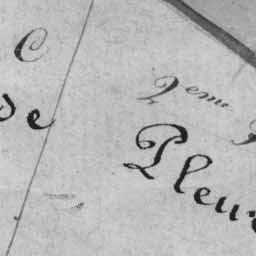 C
de
2eme
Pleur